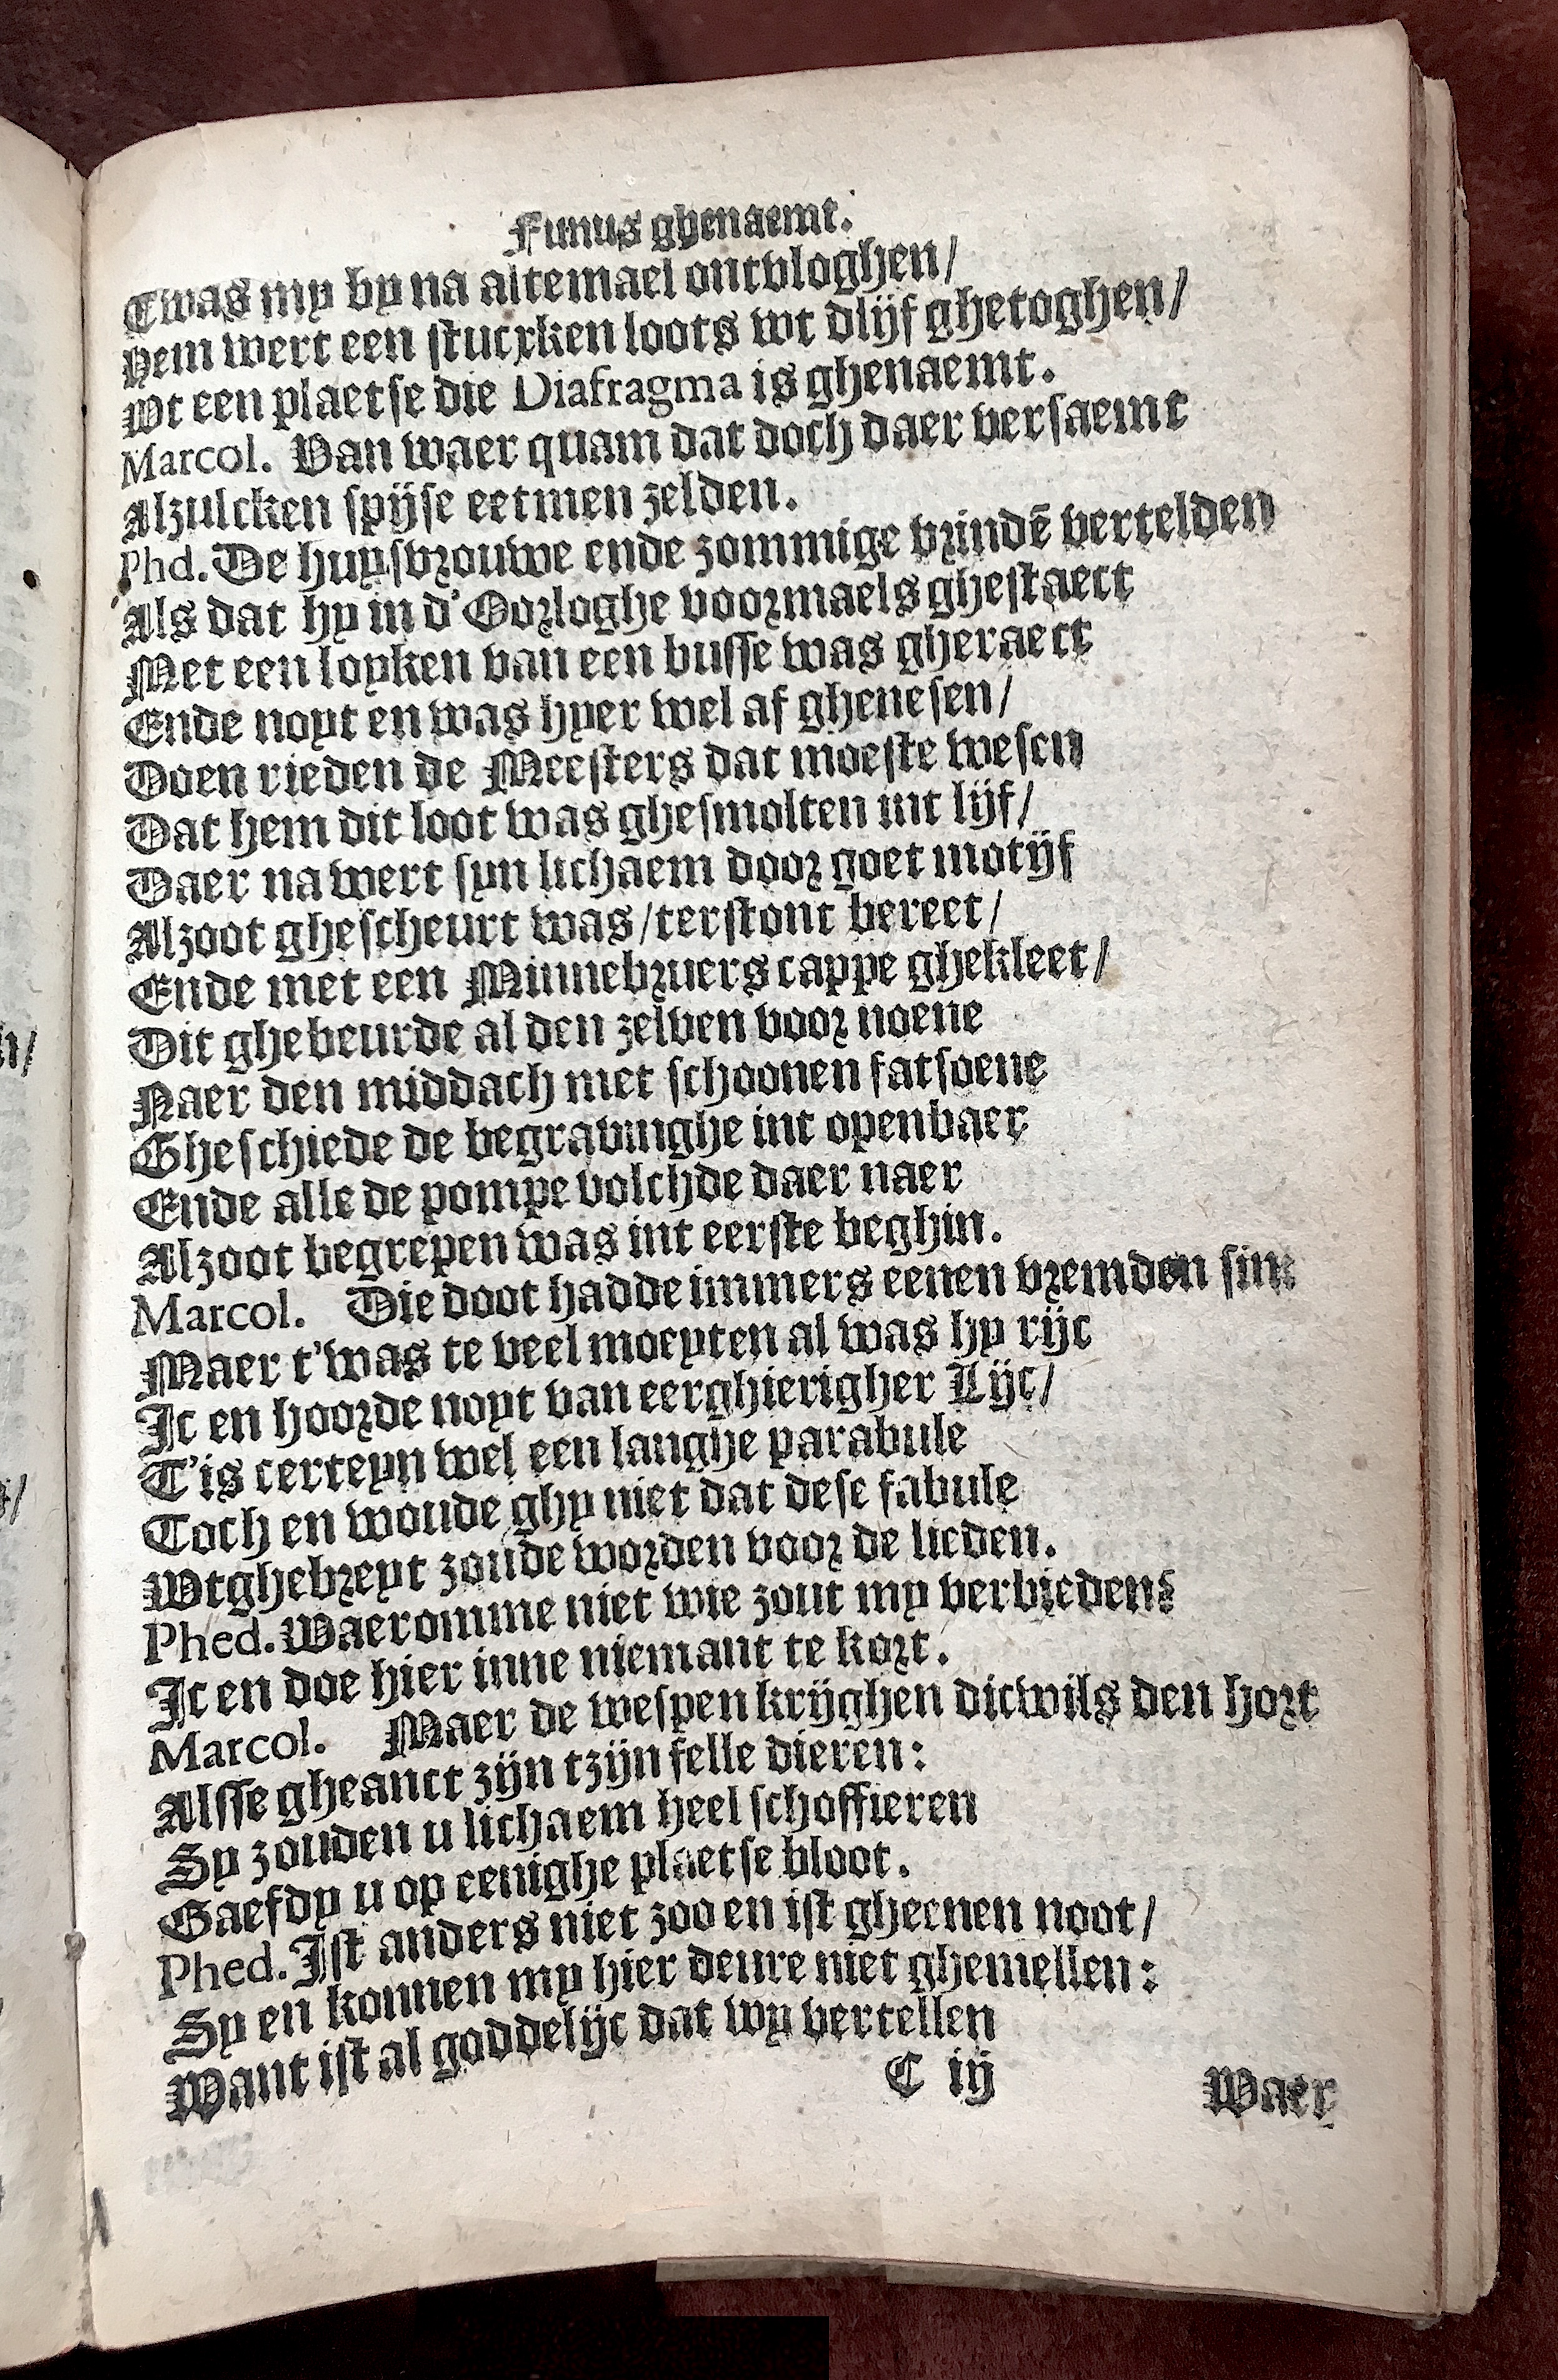 Funus ghenaemt.
Twas my by na altemael ontvloghen/
Hem wert een stucxken loots wt dlijf ghetoghen/
Wt een plaetse die Diafragma is ghenaemt.
Marcol. Van waer quam dat doch daer versaemt
Alzulcken spijse eetmen zelden.
Phd. De huysvrouwe ende zommige vrindē vertelden
Als dat hy in d'Oorloghe voormaels ghestaect
Met een loyken van een busse was gheraect
Ende noyt en was hyer wel af ghenesen/
Doen rieden de Meesters dat moeste wesen
Dat hem dit loot was ghesmolten int lijf/
Daer na wert syn lichaem door goet motijf
Alzoot ghescheurt was/terstont bereet/
Ende met een Minnebruers cappe ghekleet/
Dit ghebeurde al den zelven voor noene
Naer den middach met schoonen fatsoene
Gheschiede de begravinghe int openbaer
Ende alle de pompe volchde daer naer
Alzoot begrepen was int eerste beghin.
Marcol. Die doot hadde immers eenen vremden sin
Maer t'was te veel moeyten al was hy rijc
Ic en hoorde noyt van eerghierigher Lijc/
T'is certeyn wel een langhe parabule
Toch en woude ghy niet dat dese fabule
Wtghebreyt zoude worden voor de lieden.
Phed. Waeromme niet wie zout my verbieden?
Ic en doe hier inne niemant te kort.
Marcol. Maer de wespen krijghen dicwils den hort
Alsse gheanct zijn tzijn felle dieren:
Sy zouden u lichaem heel schoffieren
Gaefdy u op eenighe plaetse bloot.
Phed. Ist anders niet zoo en ist gheenen noot/
Sy en konnen my hier deure niet ghemellen:
Want ist al goddelijc dat wy vertellen
C iij
Waer